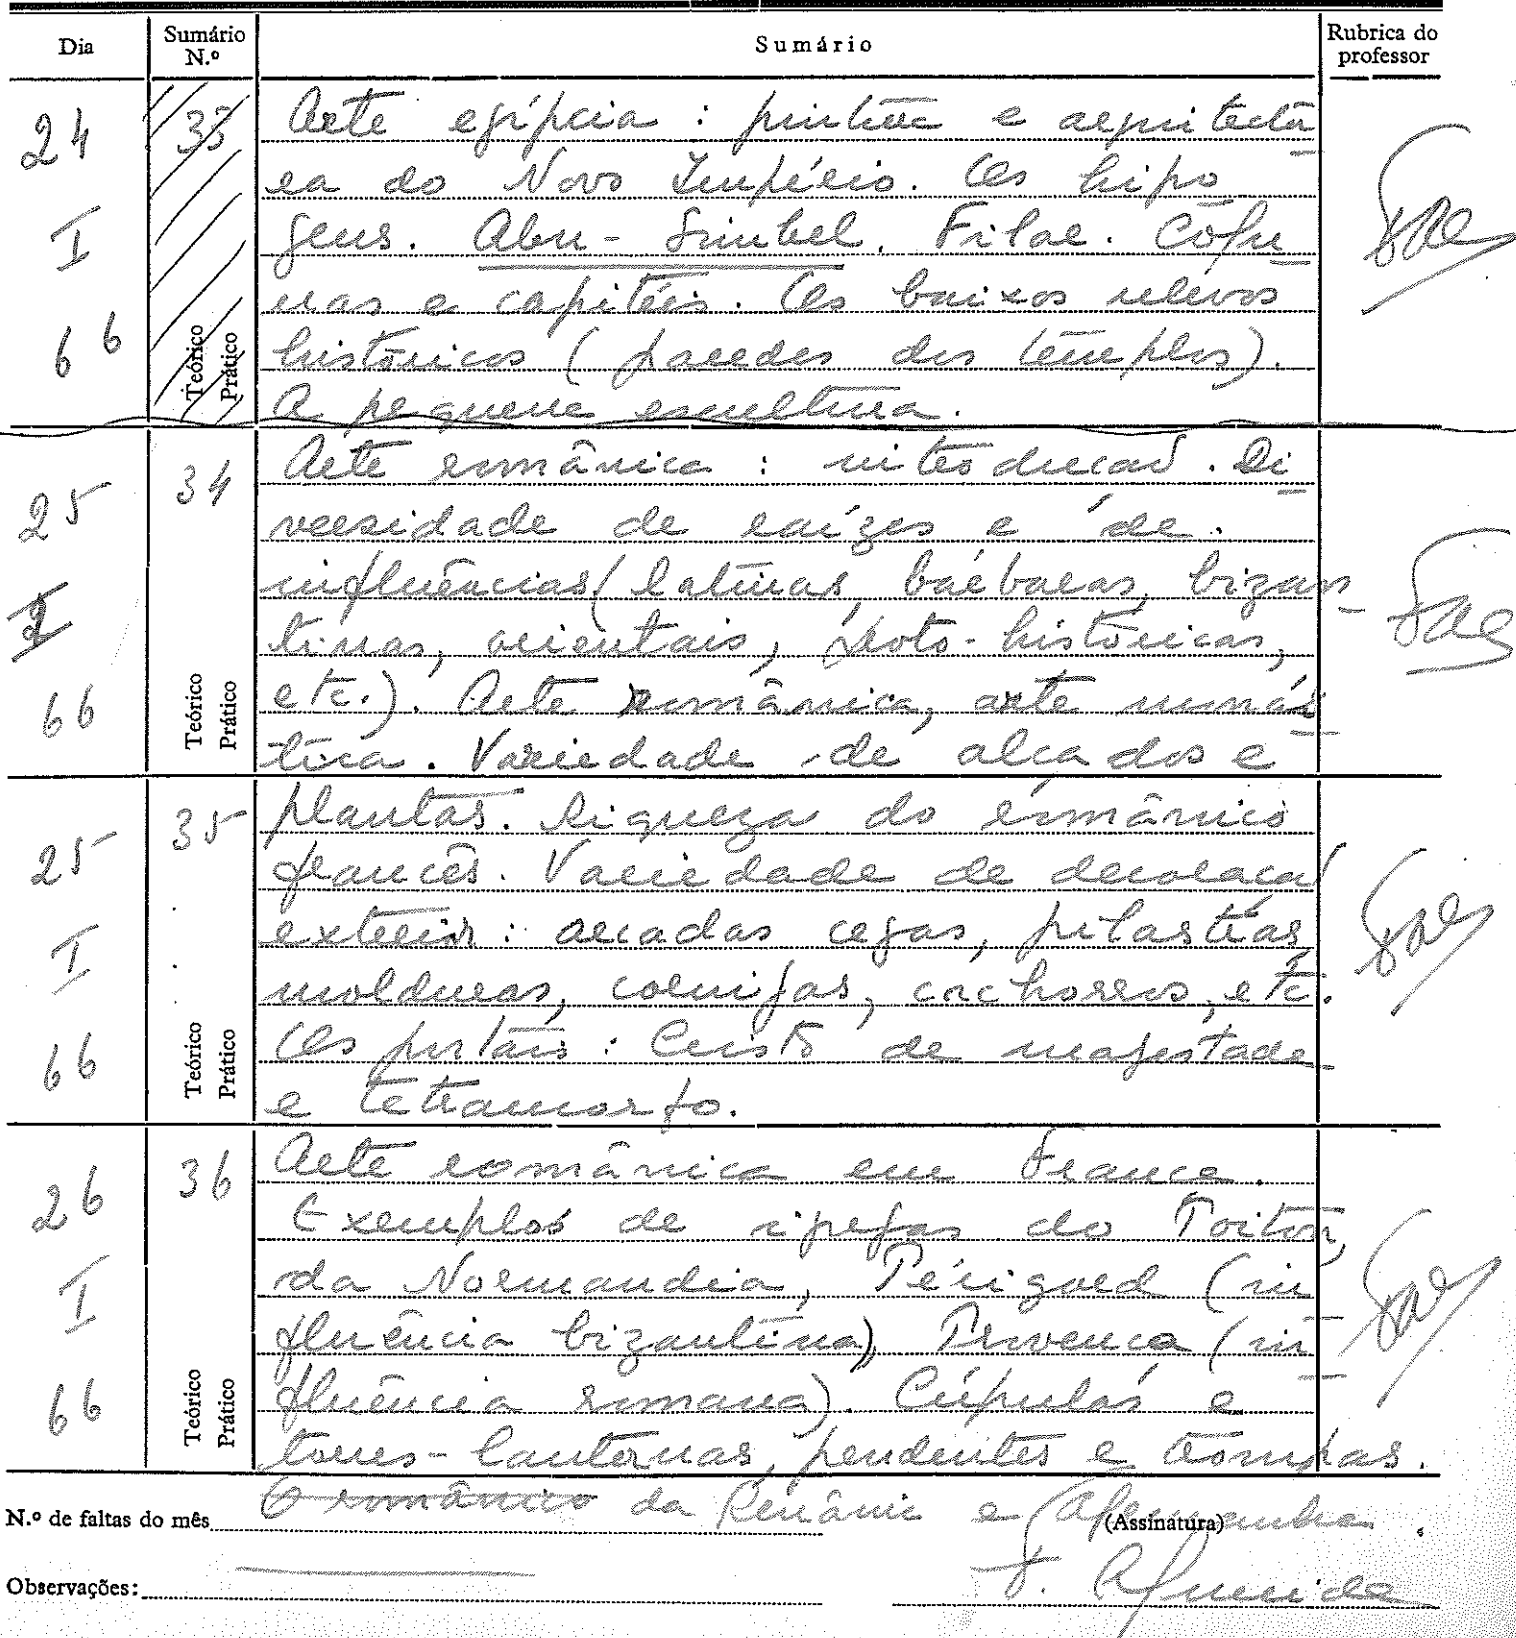 Dia Sumário N.º Sumário Rubrica do professor
24 I 66
33
Teórico Prático
Arte egípcia : pintura e arquitectu
ra do Novo Império. Os hipo
geus. Abu-Simbel. Filae. Colu
nas e capitéis. Os baixos relevos
históricos (paredes dos templos).
A pequena escultura.
25 I 66
34
Teórico Prático
Arte românica : introdução. Di
versidade de raízes e de
influências (latinas, bárbaras, bizan
tinas, orientais, proto-históricas,
etc.). Arte românica, arte monás
tica. Variedade de alçados e
25 I 66
35
Teórico Prático
plantas. Riqueza do românico
francês. Variedade de decoração
exterior : arcadas cegas, pilastras,
molduras, cornijas, cachorros, etc.
Os portais : Cristo de majestade
e tetramorfo.
26 I 66
36
Teórico Prático
Arte românica em França.
Exemplos de igrejas do Poitou,
da Normandia, Périgord (in
fluência bizantina), Provença (in
fluência romana). Cúpulas e
torres-lanternas, pendentes e trompas.
O românico da Renânia e Alemanha.
N.º de faltas do mês
(Assinatura)
Observações:
F. Almeida